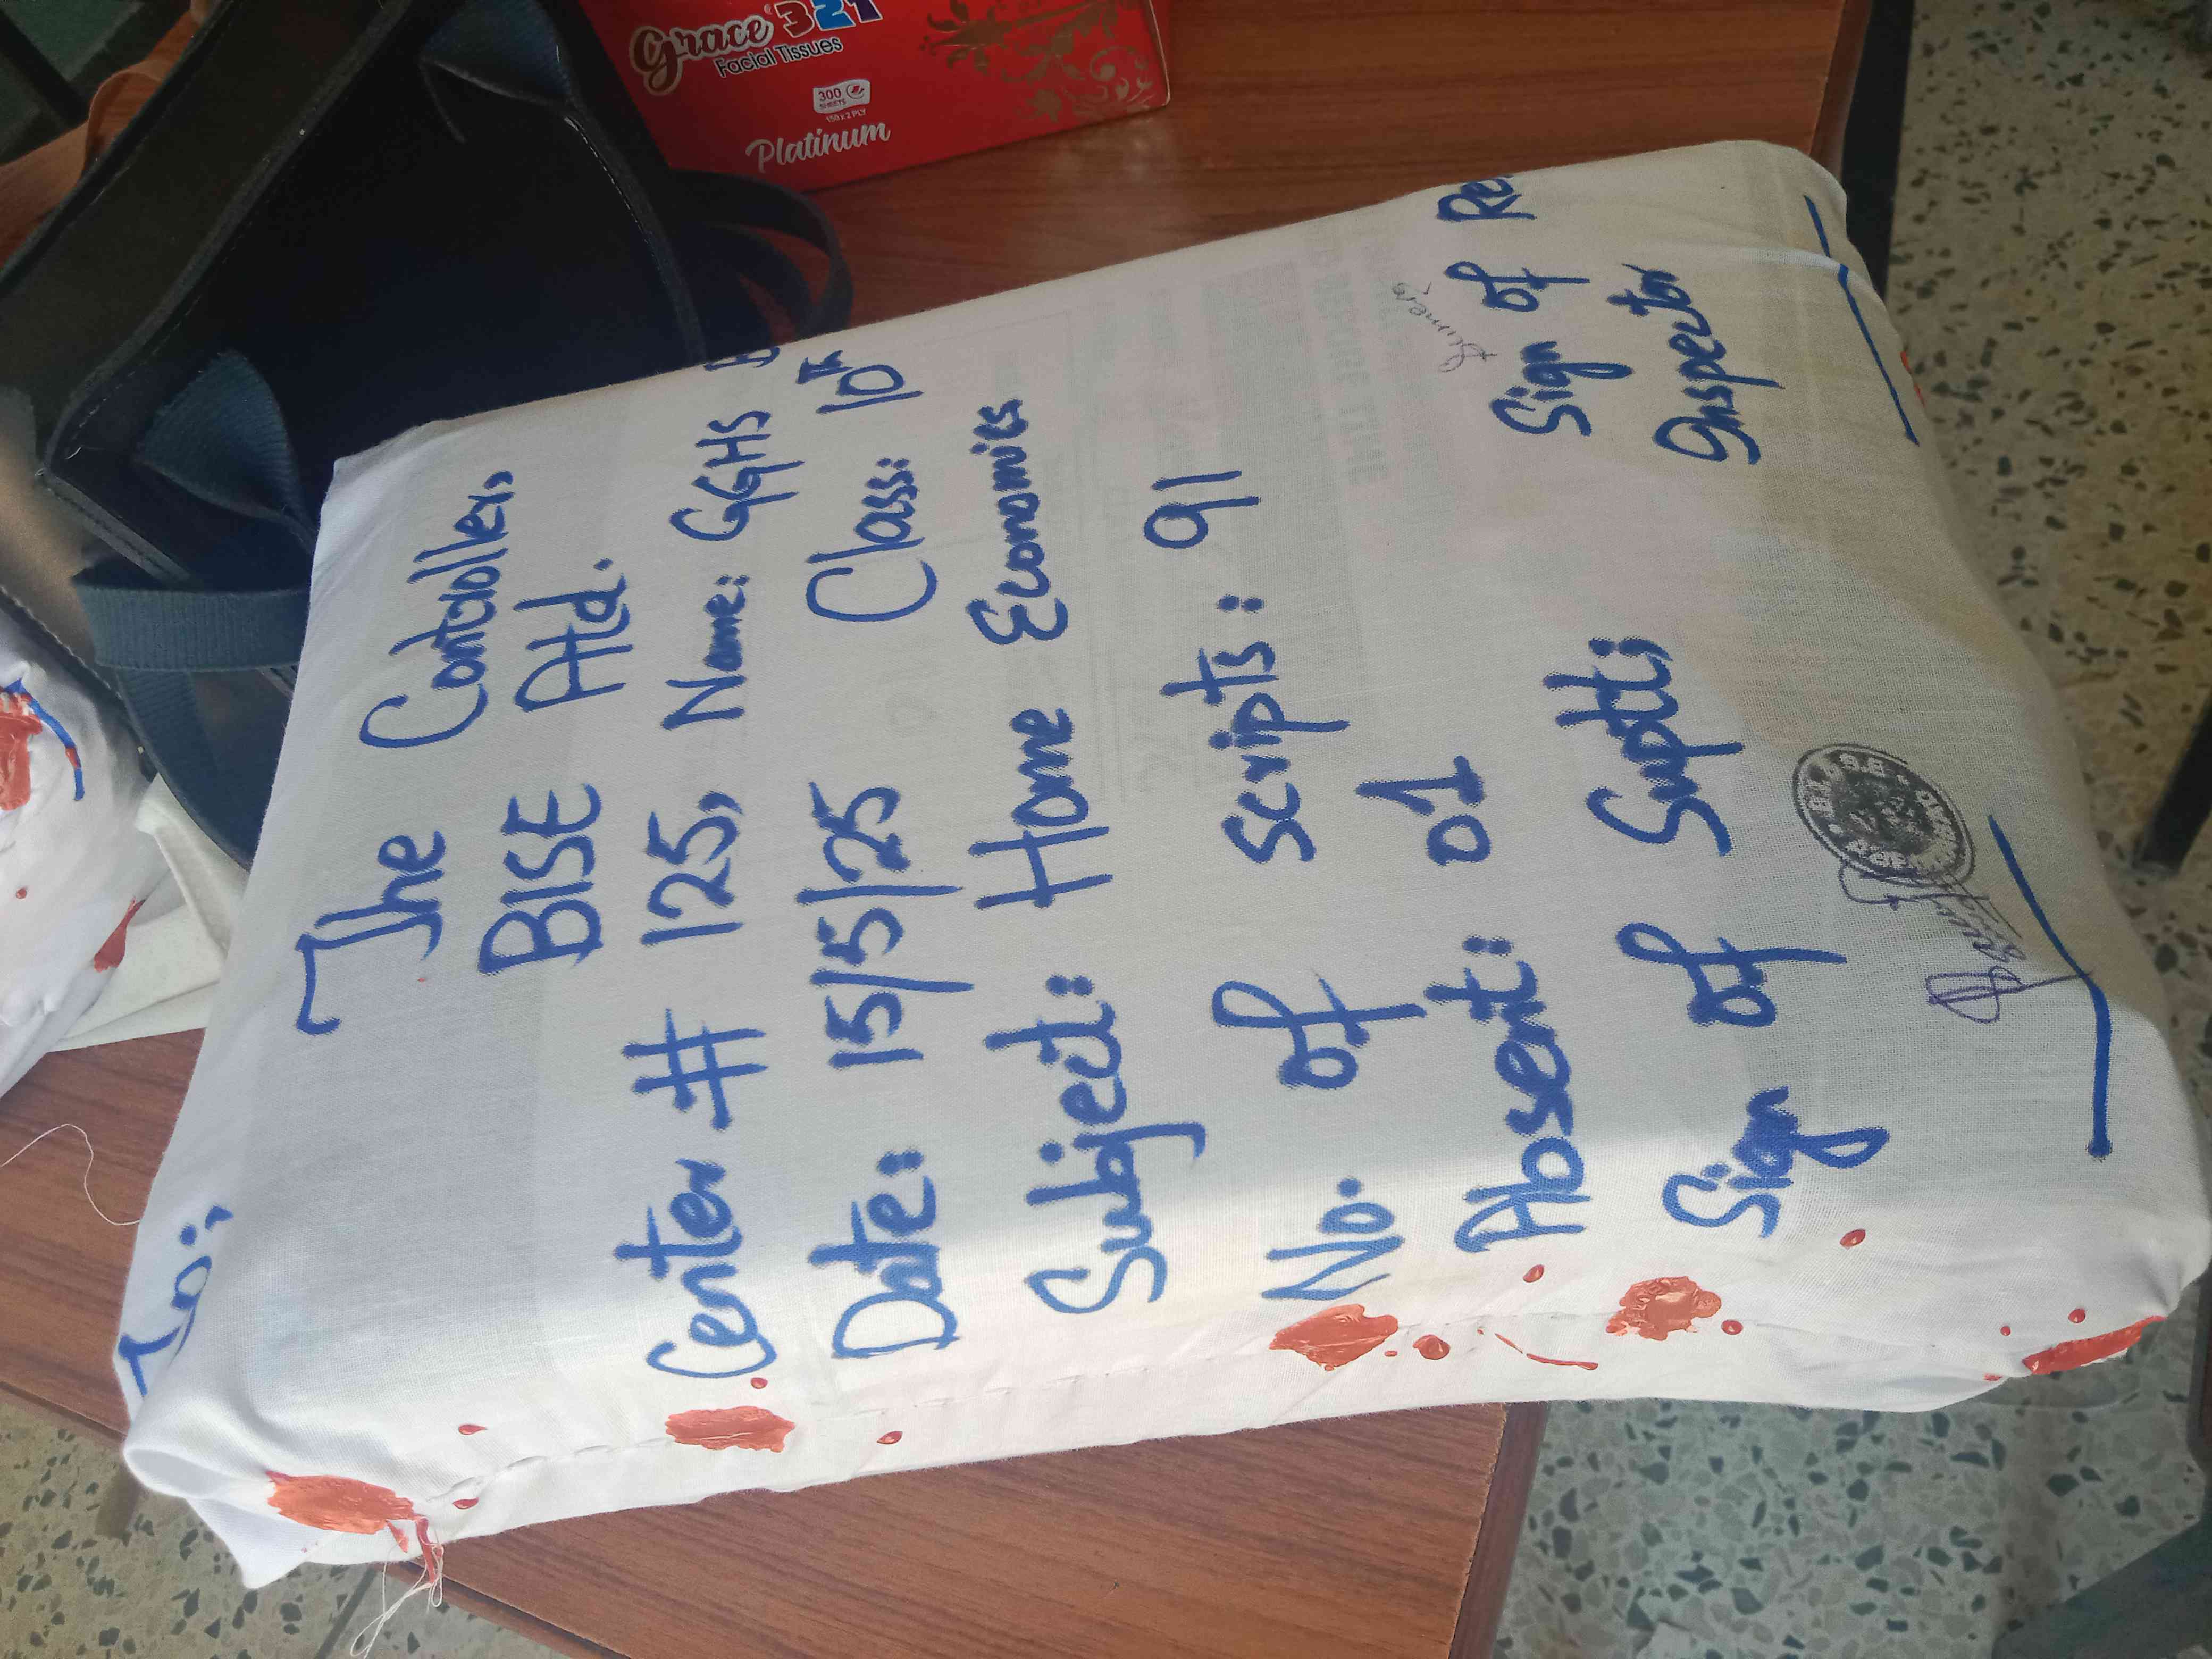 To;
The Controller,
BISE Atd.
Center # 125, Name: GGHS
Date: 15/5/25 Class: 10th
Subject: Home Economics
No. of scripts: 91
Absent: 01
Sign of Suptt; Sign of Re
Inspector
Grace 321
Facial Tissues
300
SHEETS
150 x 2 PLY
Platinum